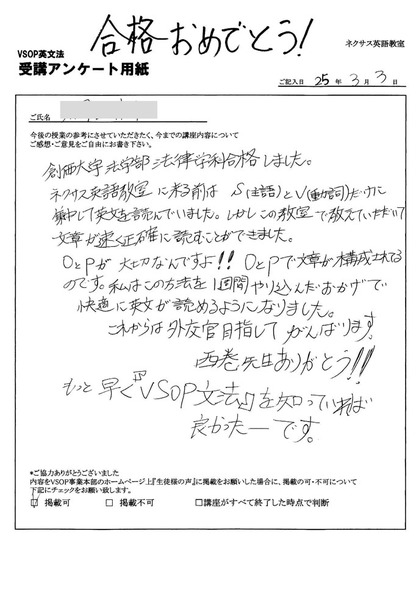 合格おめでとう!
ネクサス英語教室
VSOP英文法
受講アンケート用紙
ご記入日 25年 3月 3日
ご氏名
今後の授業の参考にさせていただきたく、今までの講座内容について
ご感想・ご意見をご自由にお書き下さい。
創価大学法学部法律学科合格しました。
ネクサス英語教室に来る前は S(主語)とV(動詞)だけに
集中して英文を読んでいました。しかしこの教室で教えていただいて
文章が速く正確に読むことができました。
OとPが大切なんですよ!! OとPで文章が構成されてる
のです。私はこの方法を1週間やり込んだおかげで
快適に英文が読めるようになりました。
これからは外交官目指してがんばります。
西巻先生ありがとう!!
もっと早く『VSOP文法』を知っていれば
良かったーです。
*ご協力ありがとうございました
内容をVSOP事業本部のホームページ上『生徒様の声』に掲載をお願いした場合に、掲載の可・不可について
下記にチェックをお願い致します。
☑掲載可 □掲載不可 □講座がすべて終了した時点で判断